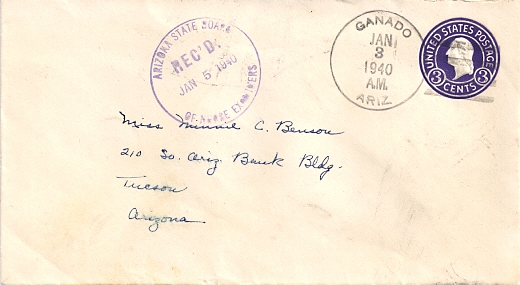 ARIZONA STATE BOARD
REC'D.
JAN 5 1940
OF NURSE EXAMINERS
GANADO
JAN
3
1940
A.M.
ARIZ.
UNITED STATES POSTAGE
3 3
CENTS
Miss Minnie C. Benson
210 So. Ariz Bank Bldg.
Tucson
Arizona